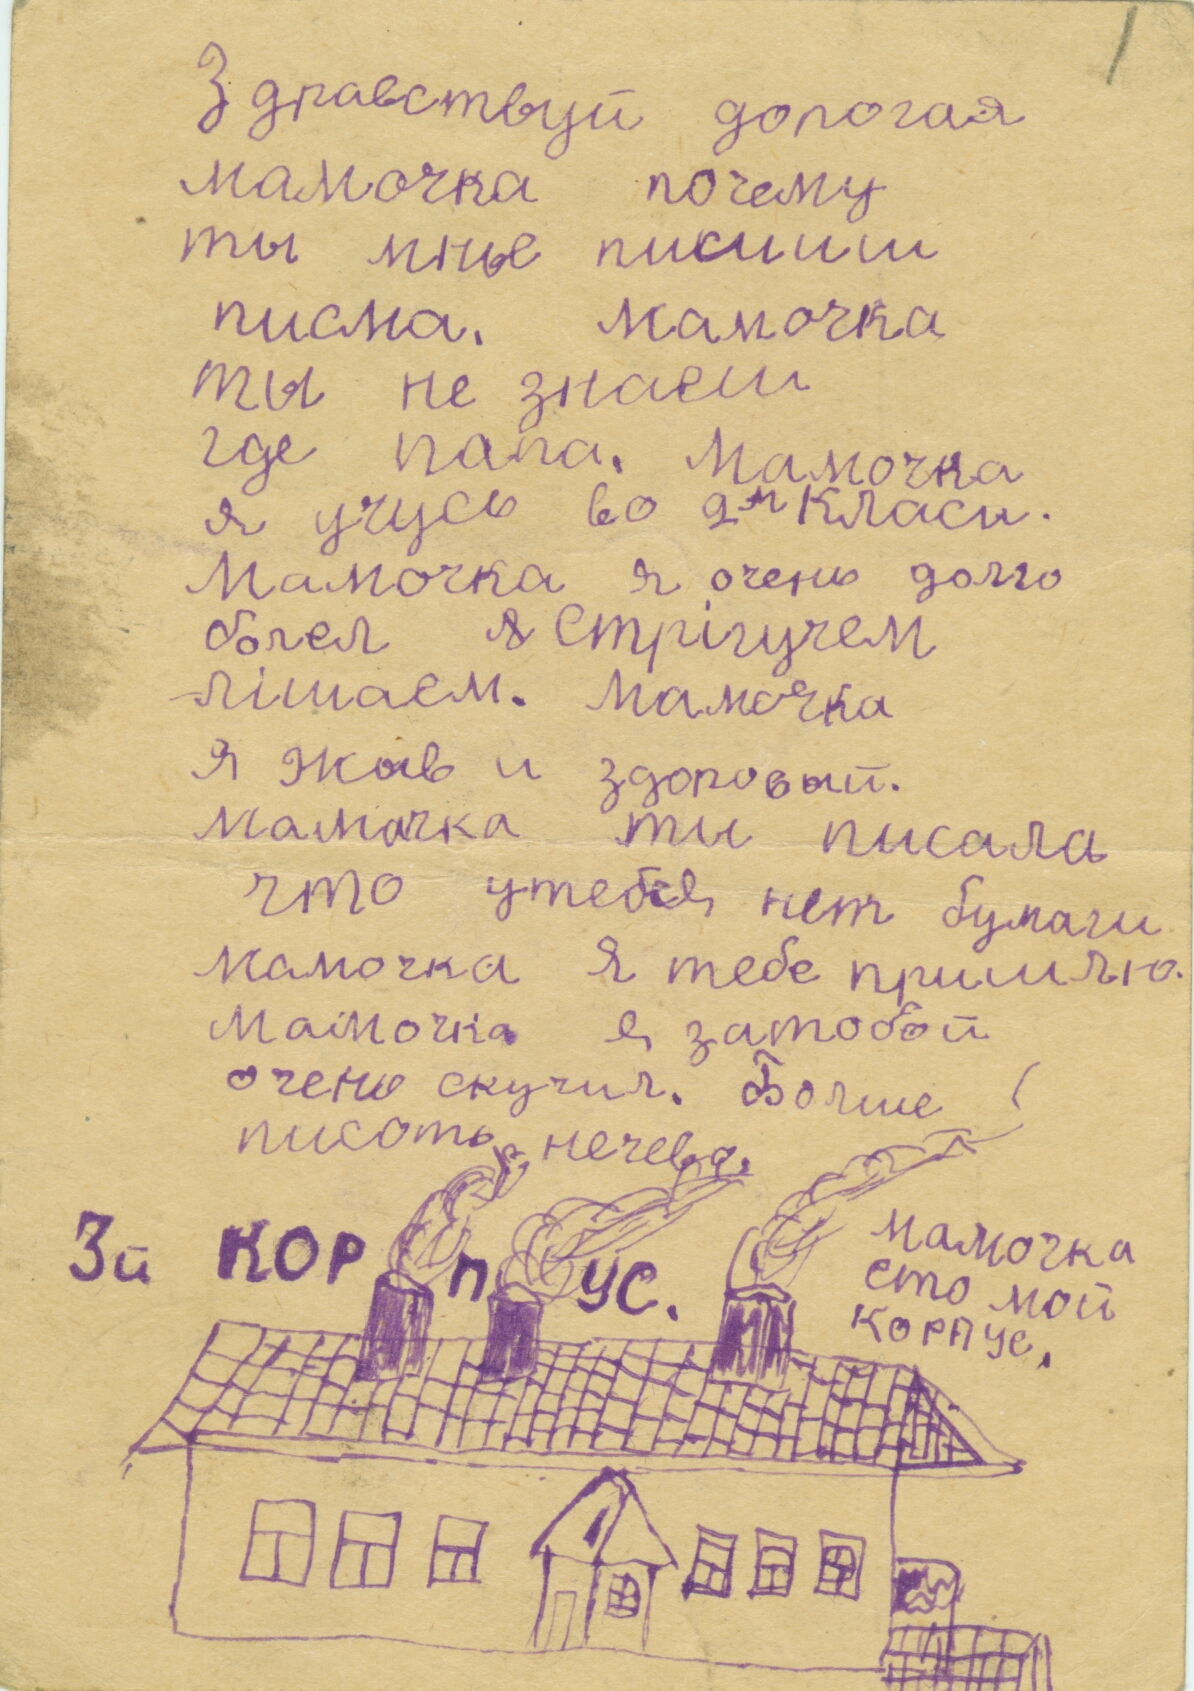 Здравствуй дорогая
мамочка почему
ты мнье писиши
писма. мамочка
ты не знаеш
где папа. Мамочка
я учусь во 2м Класи.
Мамочка я очень долго
болел я Стрігучем
лішаем. Мамочка
я жыв и здоровый.
мамочка ти писала
что утебя нет бумаги
мамочка я тебе пришлю.
мамочка я затобой
очень скучил. Болше
писать нечево.
3й КОРПУС.
мамочка
ето мой
корпус.